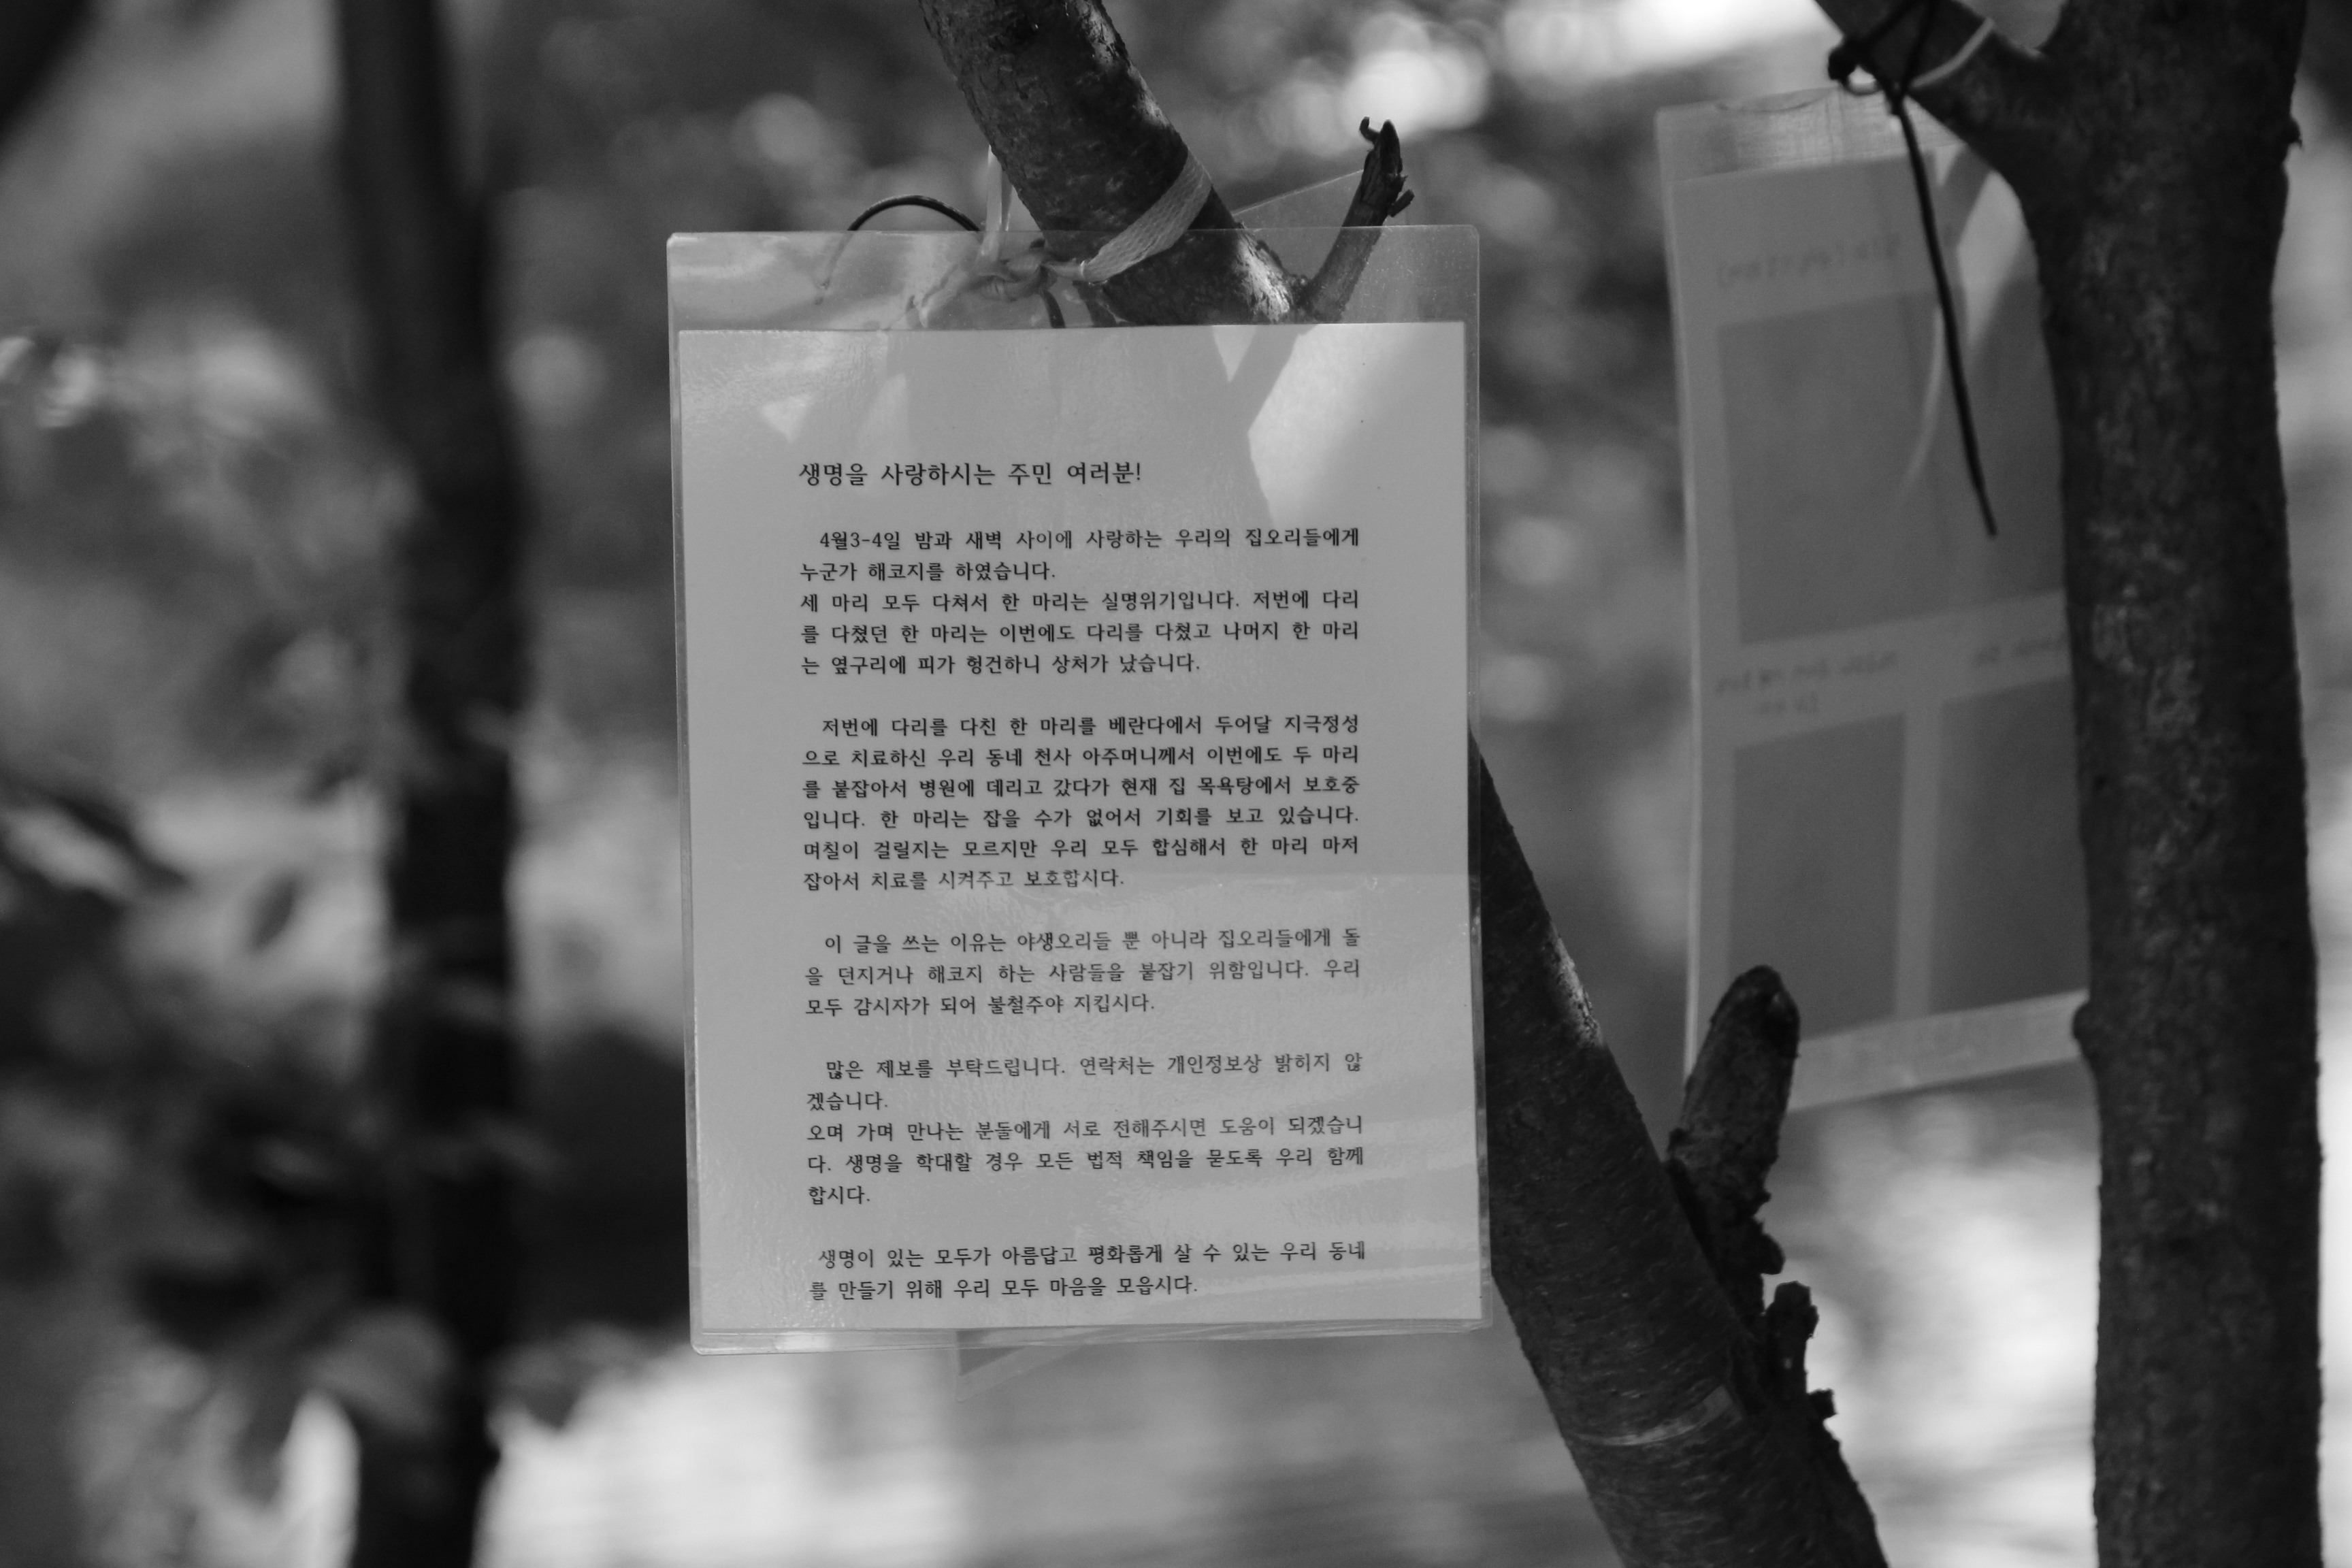 생명을 사랑하시는 주민 여러분!
4월3-4일 밤과 새벽 사이에 사랑하는 우리의 집오리들에게
누군가 해코지를 하였습니다.
세 마리 모두 다쳐서 한 마리는 실명위기입니다. 저번에 다리
를 다쳤던 한 마리는 이번에도 다리를 다쳤고 나머지 한 마리
는 옆구리에 피가 헝건하니 상처가 났습니다.
저번에 다리를 다친 한 마리를 베란다에서 두어달 지극정성
으로 치료하신 우리 동네 천사 아주머니께서 이번에도 두 마리
를 붙잡아서 병원에 데리고 갔다가 현재 집 목욕탕에서 보호중
입니다. 한 마리는 잡을 수가 없어서 기회를 보고 있습니다.
며칠이 걸릴지는 모르지만 우리 모두 합심해서 한 마리 마저
잡아서 치료를 시켜주고 보호합시다.
이 글을 쓰는 이유는 야생오리들 뿐 아니라 집오리들에게 돌
을 던지거나 해코지 하는 사람들을 붙잡기 위함입니다. 우리
모두 감시자가 되어 불철주야 지킵시다.
많은 제보를 부탁드립니다. 연락처는 개인정보상 밝히지 않
겠습니다.
오며 가며 만나는 분들에게 서로 전해주시면 도움이 되겠습니
다. 생명을 학대할 경우 모든 법적 책임을 묻도록 우리 함께
합시다.
생명이 있는 모두가 아름답고 평화롭게 살 수 있는 우리 동네
를 만들기 위해 우리 모두 마음을 모읍시다.